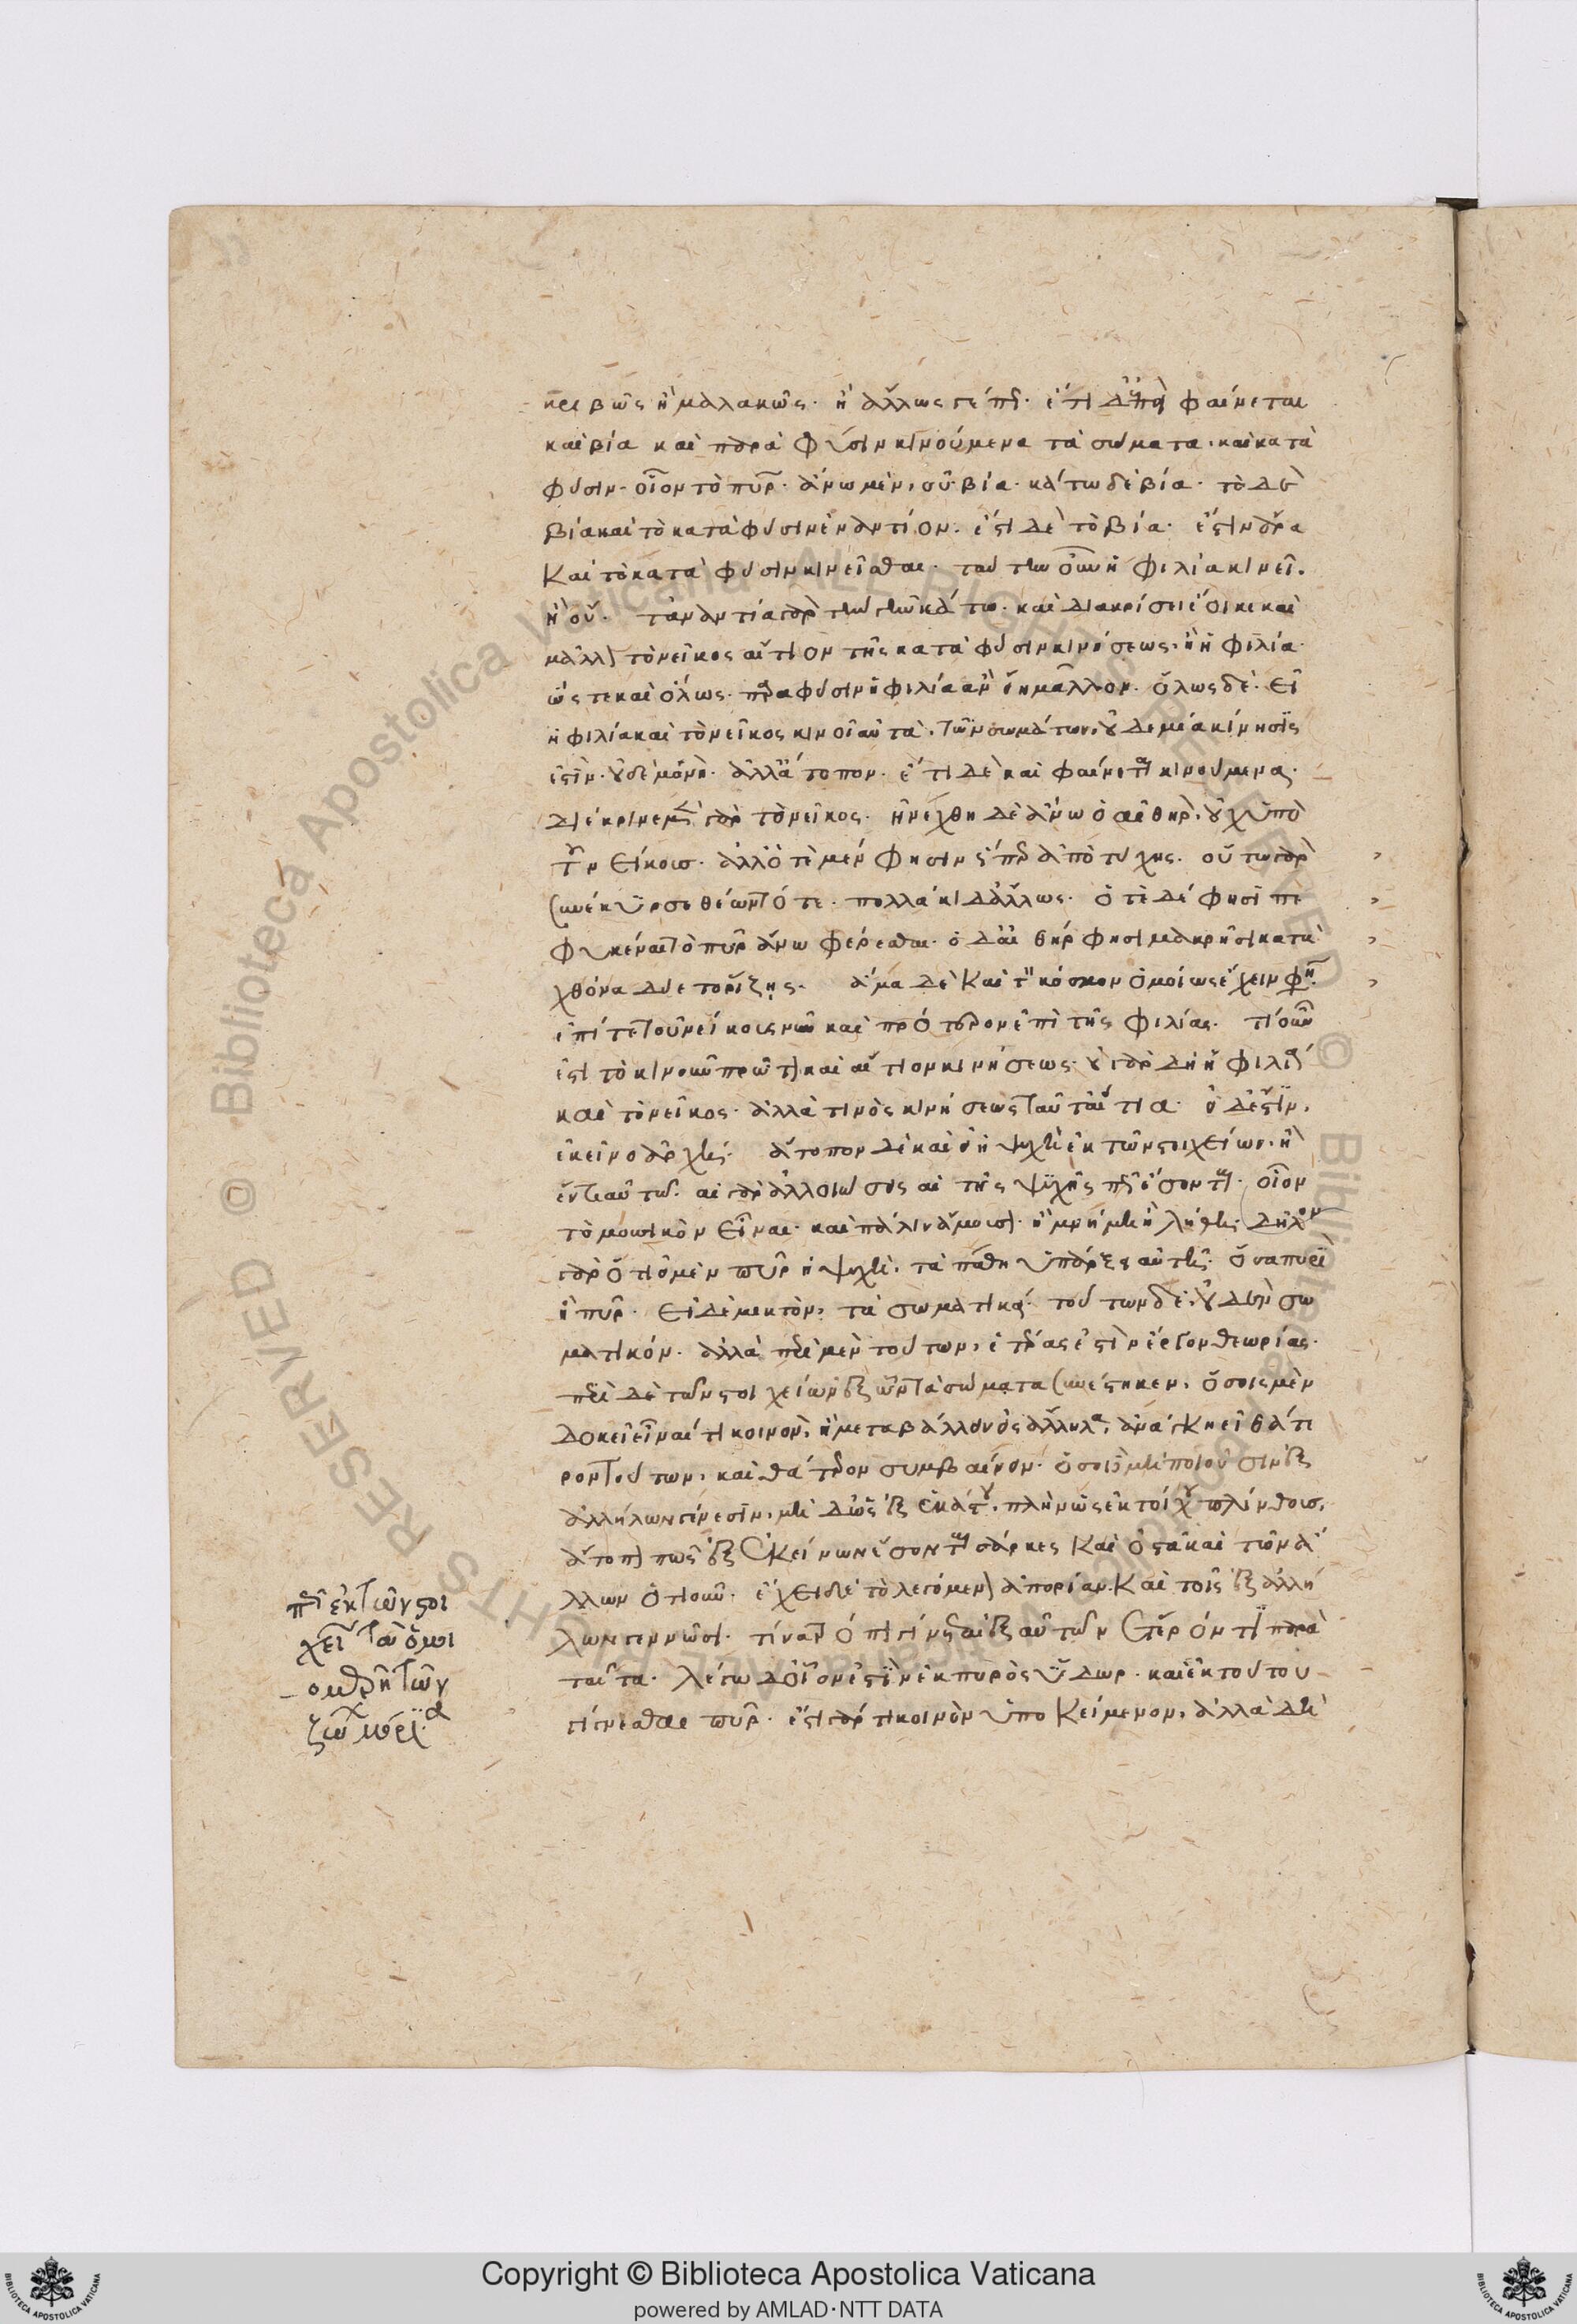 κριβῶς ἢ μαλακῶς· ἢ ἄλλως γέ πως· ἔτι δ' ἐπεὶ φαίνεται
καὶ βία καὶ παρὰ φύσιν κινούμενα τὰ σώματα· καὶ κατὰ
φύσιν· οἷον τὸ πῦρ· ἄνω μὲν, οὐ βία· κάτω δὲ βία· τὸ δὲ
βία καὶ τὸ κατὰ φύσιν ἐναντίον· ἔστι δὲ τὸ βία· ἔστιν ἄρα
καὶ τὸ κατὰ φύσιν κινεῖσθαι· ταύτην οὖν ἡ φιλία κινεῖ·
ἢ οὔ· τἀναντία γὰρ τὴν γῆν κάτω· καὶ διακρίσει ἔοικε καὶ
μᾶλλον τὸ νεῖκος αἴτιον τῆς κατὰ φύσιν κινήσεως, ἢ ἡ φιλία·
ὥστε καὶ ὅλως· παρὰ φύσιν ἡ φιλία ἂν εἴη μᾶλλον· ὅλως δὲ· εἰ
ἡ φιλία καὶ τὸ νεῖκος κινοῖ αὐτὰ· τῶν σωμάτων, οὐδεμία κίνησίς
ἐστιν· οὐδὲ μονή· ἀλλ' ἄτοπον· ἔτι δὲ καὶ φαίνεται κινούμενα·
διέκρινε μὲν γὰρ τὸ νεῖκος· ἠνέχθη δὲ ἄνω ὁ αἰθὴρ, οὐχ ὑπὸ
τοῦ νείκους· ἀλλ' ὁτὲ μέν φησιν ὥσπερ ἀπὸ τύχης· οὕτω γὰρ
συνέκυρσε θέων τότε· πολλάκι δ' ἄλλως· ὁτὲ δέ φησι πε
φυκέναι τὸ πῦρ ἄνω φέρεσθαι· ὁ δ' αἰθήρ φησι μακρῇσι κατὰ
χθόνα δύετο ῥίζῃς· ἅμα δὲ καὶ τὸν κόσμον ὁμοίως ἔχειν φησὶν·
ἐπί τε τοῦ νείκους νῦν καὶ πρότερον ἐπὶ τῆς φιλίας· τί οὖν
ἐστι τὸ κινοῦν πρῶτον καὶ αἴτιον κινήσεως· οὐ γὰρ δὴ ἡ φιλία
καὶ τὸ νεῖκος· ἀλλά τινος κινήσεως ταῦτα αἴτια· εἰ δ' ἔστιν,
ἐκεῖνο ἀρχή· ἄτοπον δὲ καὶ εἰ ἡ ψυχὴ ἐκ τῶν στοιχείων, ἢ
ἕν τι αὐτῶν· αἱ γὰρ ἀλλοιώσεις αἱ τῆς ψυχῆς πῶς ἔσονται· οἷον
τὸ μουσικὸν εἶναι· καὶ πάλιν ἄμουσον· ἢ μνήμη ἢ λήθη· δῆλον
γὰρ ὅτι εἰ μὲν πῦρ ἡ ψυχὴ, τὰ πάθη ὑπάρξει αὐτῇ· ὅσα πυρὶ
ᾗ πῦρ· εἰ δὲ μικτὸν, τὰ σωματικά· τούτων δὲ, οὐδὲν σω
ματικόν· ἀλλὰ περὶ μὲν τούτων, ἑτέρας ἐστὶν ἔργον θεωρίας·
περὶ δὲ τῶν στοιχείων ἐξ ὧν τὰ σώματα συνέστηκεν, ὅσοις μὲν
δοκεῖ εἶναί τι κοινὸν, ἢ μεταβάλλειν εἰς ἄλληλα, ἀνάγκη εἰ θάτε
ρον τούτων, καὶ θάτερον συμβαίνειν· ὅσοι δὲ μὴ ποιοῦσιν ἐξ
ἀλλήλων γένεσιν, μὴ δ' ὡς ἐξ ἑκάστου, πλὴν ὡς ἐκ τοίχου πλίνθους,
ἄτοπον πῶς ἐξ ἐκείνων ἔσονται σάρκες καὶ ὀστᾶ καὶ τῶν ἄ
λλων ὁτιοῦν· ἔχει δὲ τὸ λεγόμενον ἀπορίαν· καὶ τοῖς ἐξ ἀλλή
λων γεννῶσι· τίνα τρόπον γίνεται ἐξ αὐτῶν ἕτερόν τι παρὰ
ταῦτα· λέγω δ' οἷον ἐστὶν ἐκ πυρὸς ὕδωρ· καὶ ἐκ τούτου
γίγνεσθαι πῦρ· ἔστι γάρ τι κοινὸν ὑποκείμενον, ἀλλὰ δὴ
περὶ ἐκ τῶν στοι
χεί τὰ ὁμοι
ομερῆ τῶν
ζώων μόρια
Copyright © Biblioteca Apostolica Vaticana
powered by AMLAD·NTT DATA